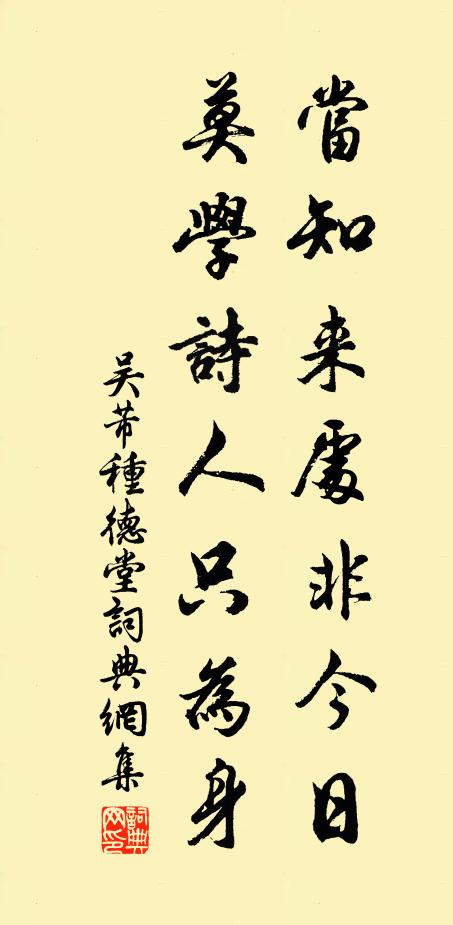 當知来處非今日
莫學詩人只為身
吴芾種德堂詞典網集
詞典
网印